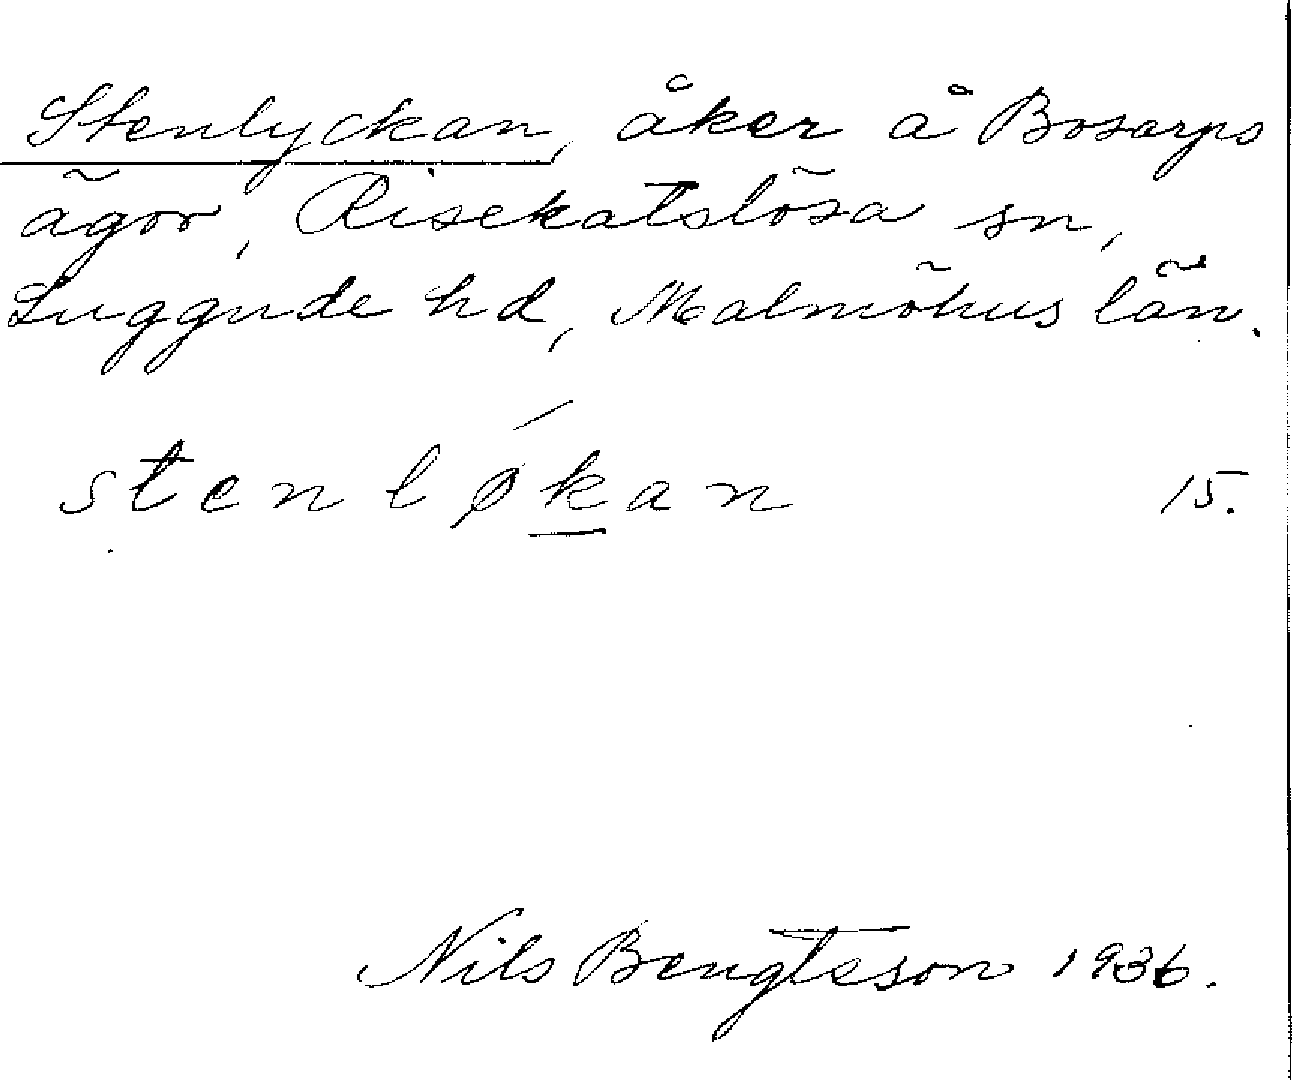 Stenlyckan, åker å Bosarps
ägor, Risekatslösa sn,
Luggude hd, Malmöhus län.
stenlǿkan 15.
Nils Bengtsson 1936.